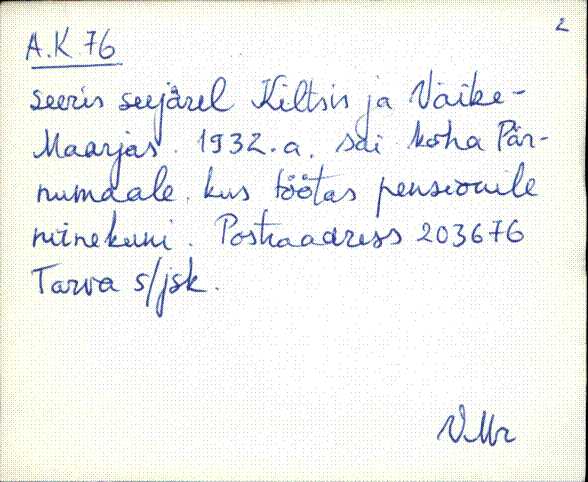 2
A.K 76
seeris seejärel Kiltsis ja Väike-
Maarjas. 1932.a. sai koha Pär-
numaale, kus töötas pensionile
minekuni. Postiaadress 203676
Tarva s/jsk.